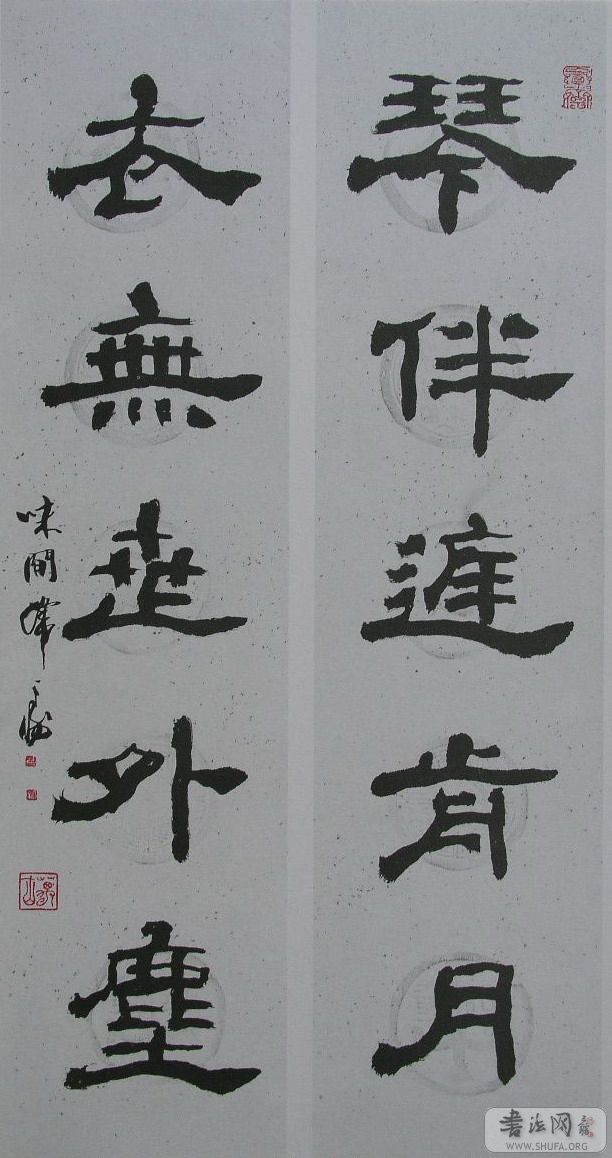 琴伴庭前月
衣無世外塵
味
書法网
WWW.SHUFA.ORG